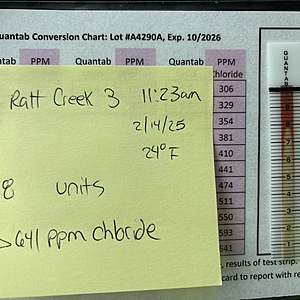 uantab Conversion Chart: Lot #A4290A, Exp. 10/2026
tab PPM Quantab PPM Quantab PPM
Chloride
306
329
354
381
410
441
474
511
550
593
641
Ratt Creek 3 11:23am
2/14/25
24°F
8 units
>641 ppm chloride
, results of test strip.
card to report with re
QUANTAB